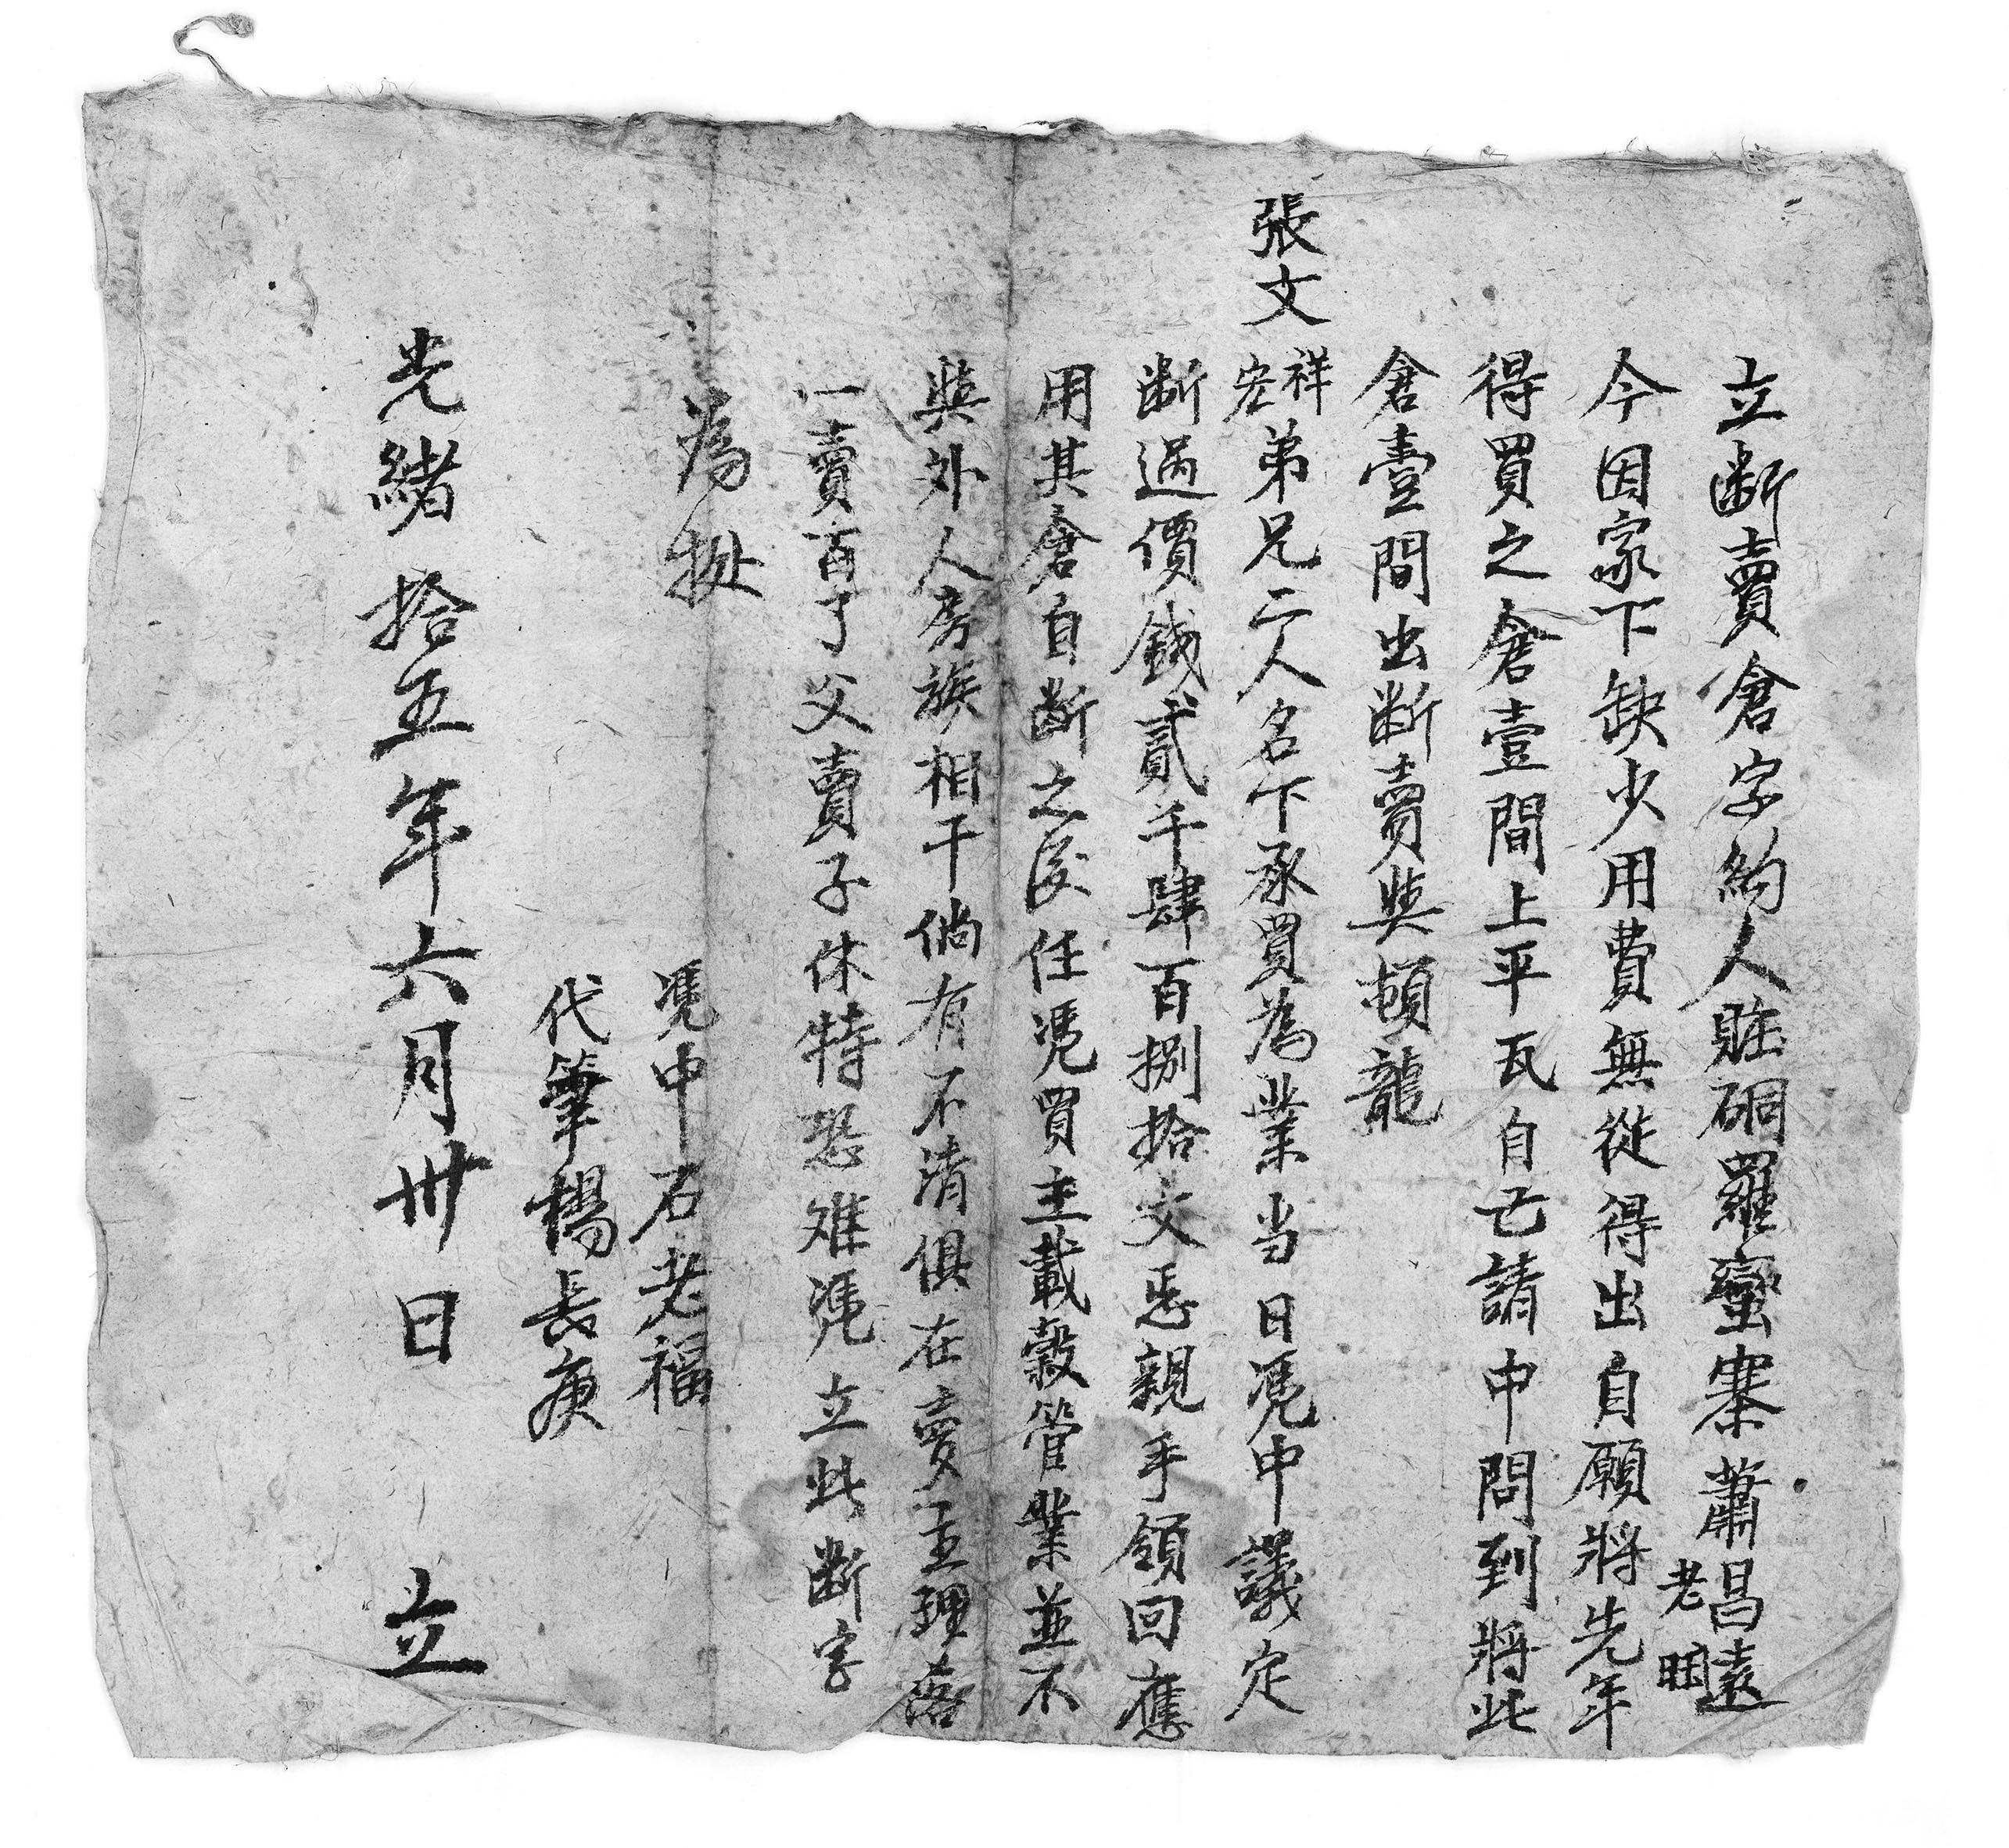 立断賣倉字約人駐硐羅蠻寨蕭昌遠
老旺
今因家下缺少用費無從得出自願將先年
得買之倉壹間上平瓦自己請中問到將此
倉壹間出断賣與頓龍
張文祥宏弟兄二人名下承買為業当日凴中議定
断過價錢貳千肆百捌拾文悉親手領回應
用其倉自断之後任凴買主載穀管業並不
與外人房族相干倘有不清俱在賣主理落
一賣百了父賣子休特恐难凴立此断字
為拠
凴中石老福
代筆楊長庚
光緒拾五年六月卅日 立